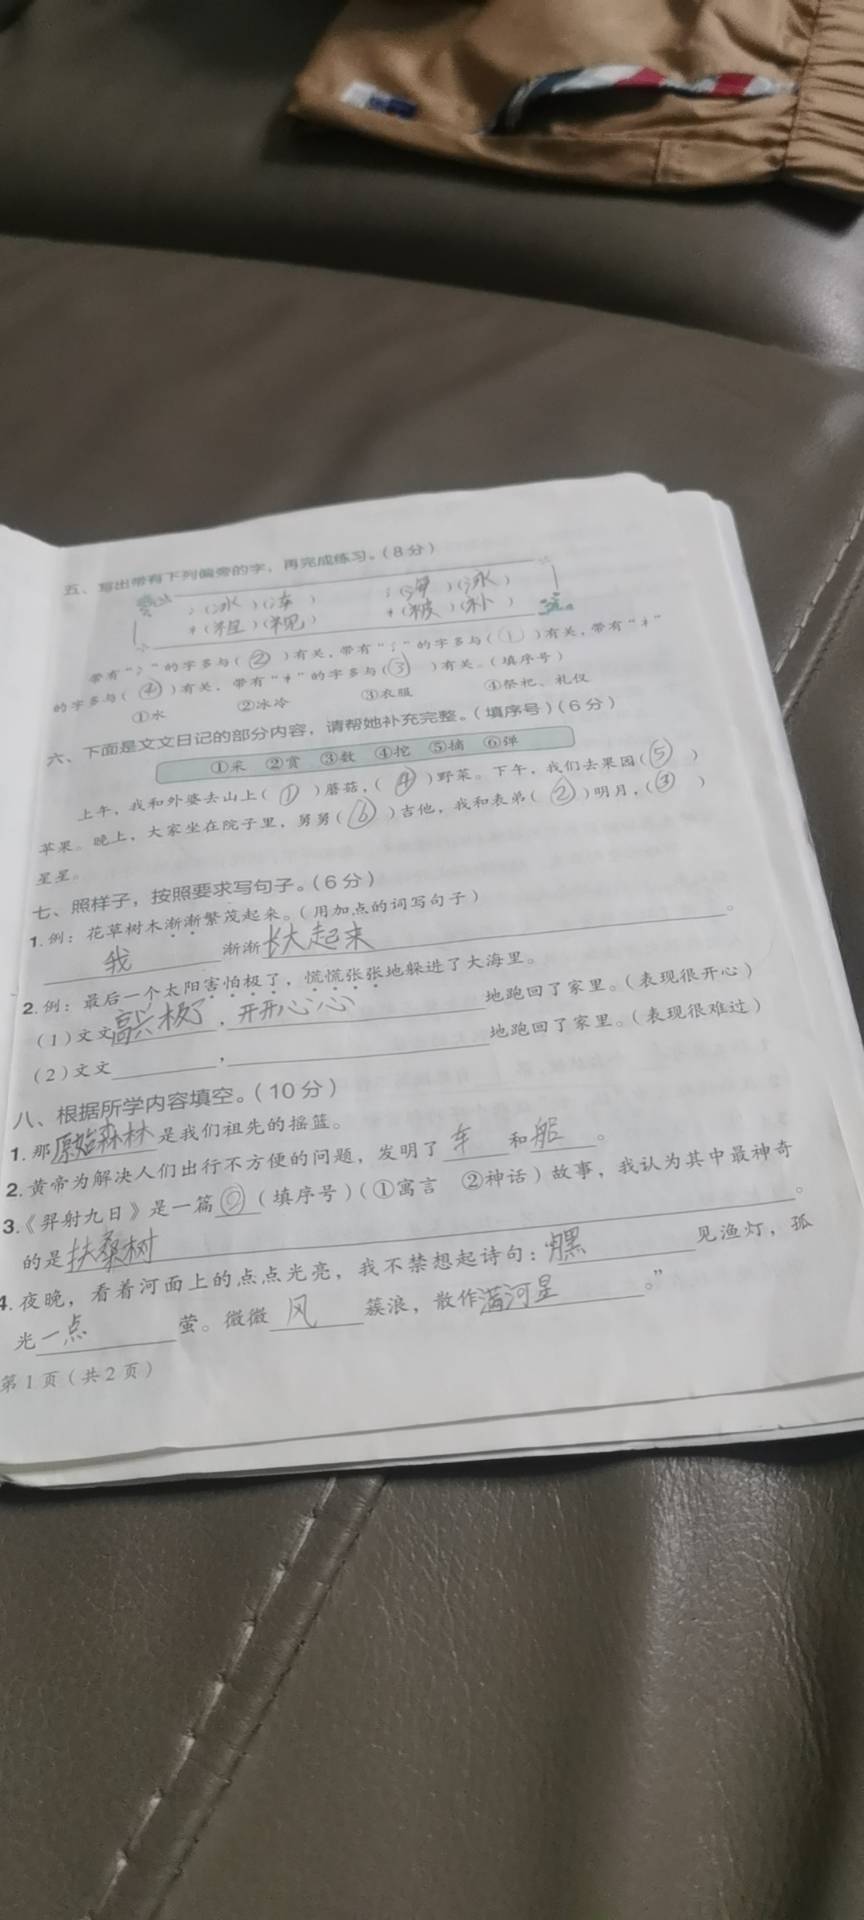 五、写出带有下列偏旁的字，再完成练习。（8分）
冫（冰）（冻） 氵（海）（泳）
礻（祖）（视） 衤（被）（补）
带有“冫”的字多与（②）有关，带有“氵”的字多与（①）有关，带有“礻”
的字多与（④）有关，带有“衤”的字多与（③）有关。（填序号）
①水 ②冰冷 ③衣服 ④祭祀、礼仪
六、下面是文文日记的部分内容，请帮她补充完整。（填序号）（6分）
①采 ②赏 ③数 ④挖 ⑤摘 ⑥弹
上午，我和外婆去山上（①）蘑菇，（④）野菜。下午，我们去果园（⑤）
苹果。晚上，大家坐在院子里，舅舅（⑥）吉他，我和表弟（②）明月，（③）
星星。
七、照样子，按照要求写句子。（6分）
1.例：花草树木渐渐繁茂起来。（用加点的词写句子）
我渐渐长大起来。
2.例：最后一个太阳害怕极了，慌慌张张地躲进了大海里。
（1）文文高兴极了，开开心心地跑回了家里。（表现很开心）
（2）文文，地跑回了家里。（表现很难过）
八、根据所学内容填空。（10分）
1.那原始森林是我们祖先的摇篮。
2.黄帝为解决人们出行不方便的问题，发明了车和船。
3.《羿射九日》是一篇②（填序号）（①寓言 ②神话）故事，我认为其中最神奇
的是扶桑树。
4.夜晚，看着河面上的点点光亮，我不禁想起诗句：“月黑见渔灯，孤
光一点萤。微微风簇浪，散作满河星。”
第1页（共2页）